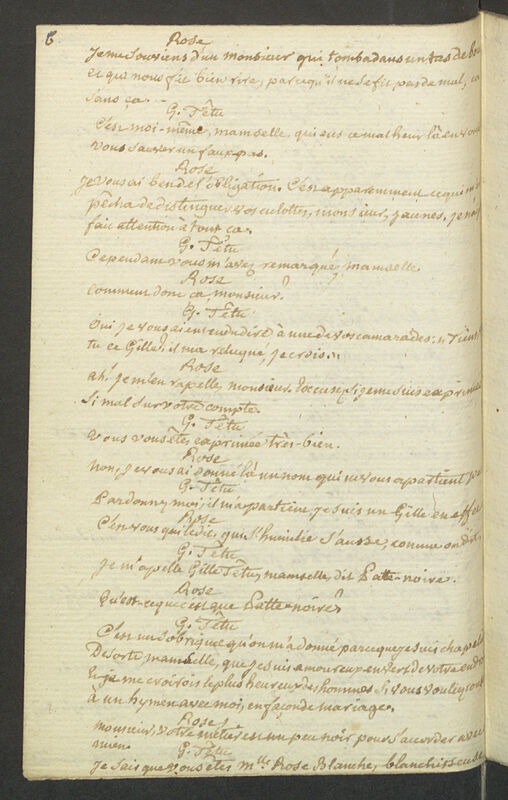 6
Rose
Je me souviens d'un monsieur qui tomba dans un tas de bou
et qui nous fit bien rire, parcequ'il ne se fit pas de mal, ca
sans ça.
G. Têtu
C'est moi-même, mamselle, qui eus ce malheur là en voul
vous sauver un faux pas.
Rose
Je vous ai ben de l'obligation. C'est apparemment ce qui m'em
pêcha de distinguer vos culottes, monsieur, jaunes. je n'ai
fait attention à tout ça.
G. Têtu
Cependant vous m'avez remarqué, mamselle.
Rose
comment donc ça, monsieur?
G. Têtu
Oui je vous ai entendu dire à une de vos camarades: "Tiens
tu ce Gille? il m'a reluqué, je crois."
Rose
ah! je m'en rapelle, monsieur. Excuse si je me suis exprimée
si mal sur votre compte.
G. Têtu
Vous vous êtes exprimée très-bien.
Rose
non, je vous ai donné là un nom qui ne vous apartient pa
G. Têtu
Pardonnez moi; il m'apartient, je suis un Gille en effet
Rose
C'est vous qui le dit, qui s'humilie s'ausse, comme on dit.
G. Têtu
Je m'apelle Gille Têtu, mamselle, dit Patte-noire.
Rose
Qu'est-ce que c'est que Patte-noire?
G. Têtu
C'est un sobriquet qu'on m'a donné parceque je suis chapel
De sorte mamselle, que je suis amoureux envers de votre endroi
et je me croirois le plus heureux des hommes si vous vouliez cons
à un hymen avec moi, en façon de mariage.
Rose
monsieur, votre métier est un peu noir pour s'accorder avec
mien
G. Têtu
Je sais que vous êtes mlle Rose Blanche, blanchisseuse